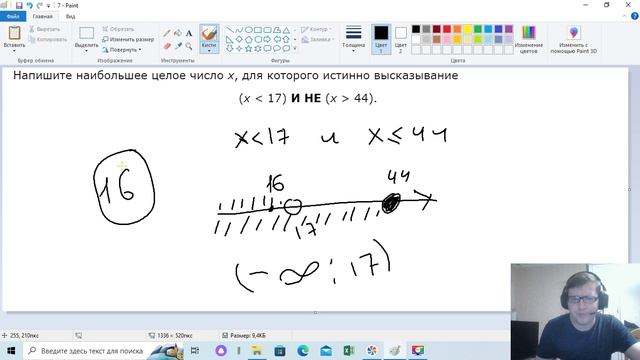 7 - Paint
Вставить
Вырезать
Копировать
Буфер обмена
Выделить
Обрезать
Изменить размер
Повернуть
Изображение
Инструменты
Кисти
Контур
Заливка
Фигуры
Толщина
Цвет 1
Цвет 2
Цвета
Изменение цветов
Изменить с помощью Paint 3D
Напишите наибольшее целое число x, для которого истинно высказывание
(x < 17) И НЕ (x > 44).
x<17 и x≤44
16
16 44
17
(-∞; 17)
255, 210пкс
1336 × 520пкс
Размер: 9,4КБ
Введите здесь текст для поиска